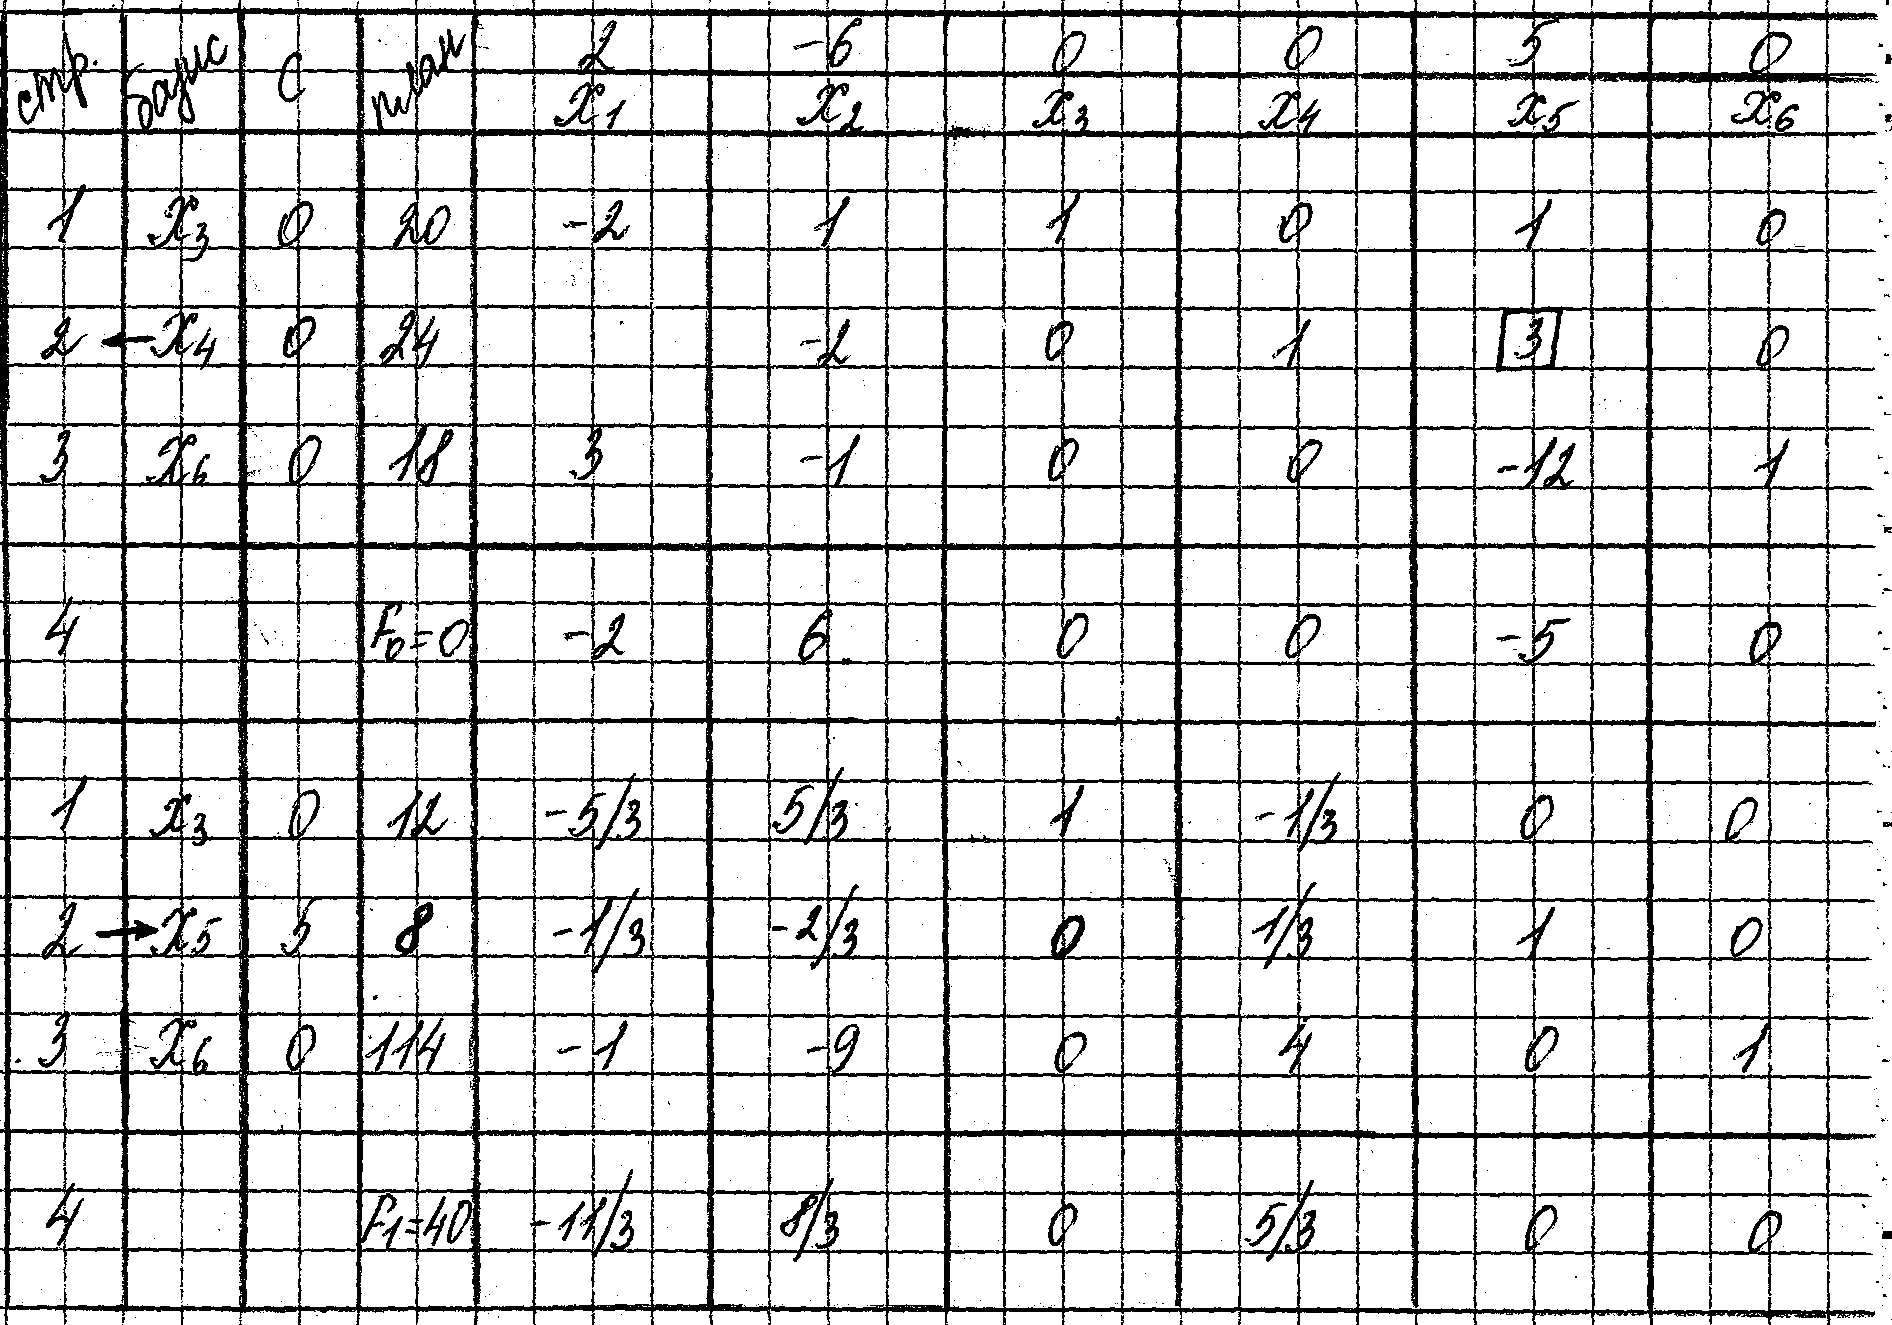 стр. базис С план 2 -6 0 0 5 0
x1 x2 x3 x4 x5 x6
1 x3 0 20 -2 1 1 0 1 0
2 ← x4 0 24 -2 0 1 3 0
3 x6 0 18 3 -1 0 0 -12 1
4 F0=0 -2 6 0 0 -5 0
1 x3 0 12 -5/3 5/3 1 -1/3 0 0
2 → x5 5 8 -1/3 -2/3 0 1/3 1 0
3 x6 0 114 -1 -9 0 4 0 1
4 F1=40 -11/3 8/3 0 5/3 0 0